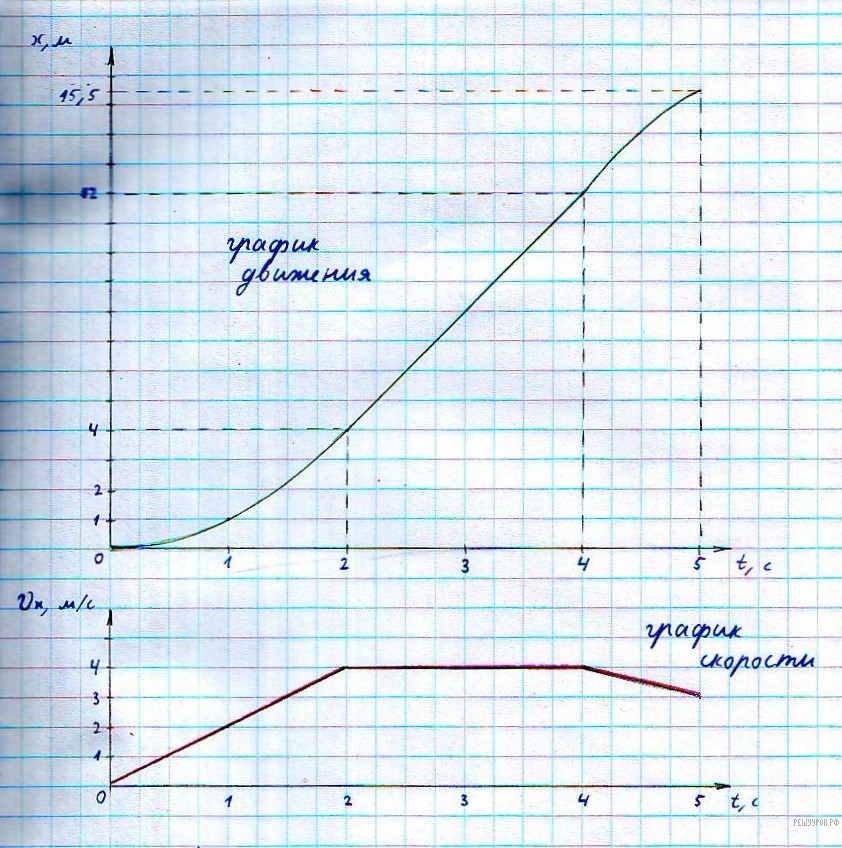 x, м
15,5
12
график
движения
4
2
1
0 1 2 3 4 5 t, c
υx, м/с
график
скорости
4
3
2
1
0 1 2 3 4 5 t, c
РЕШУУРОК.РФ